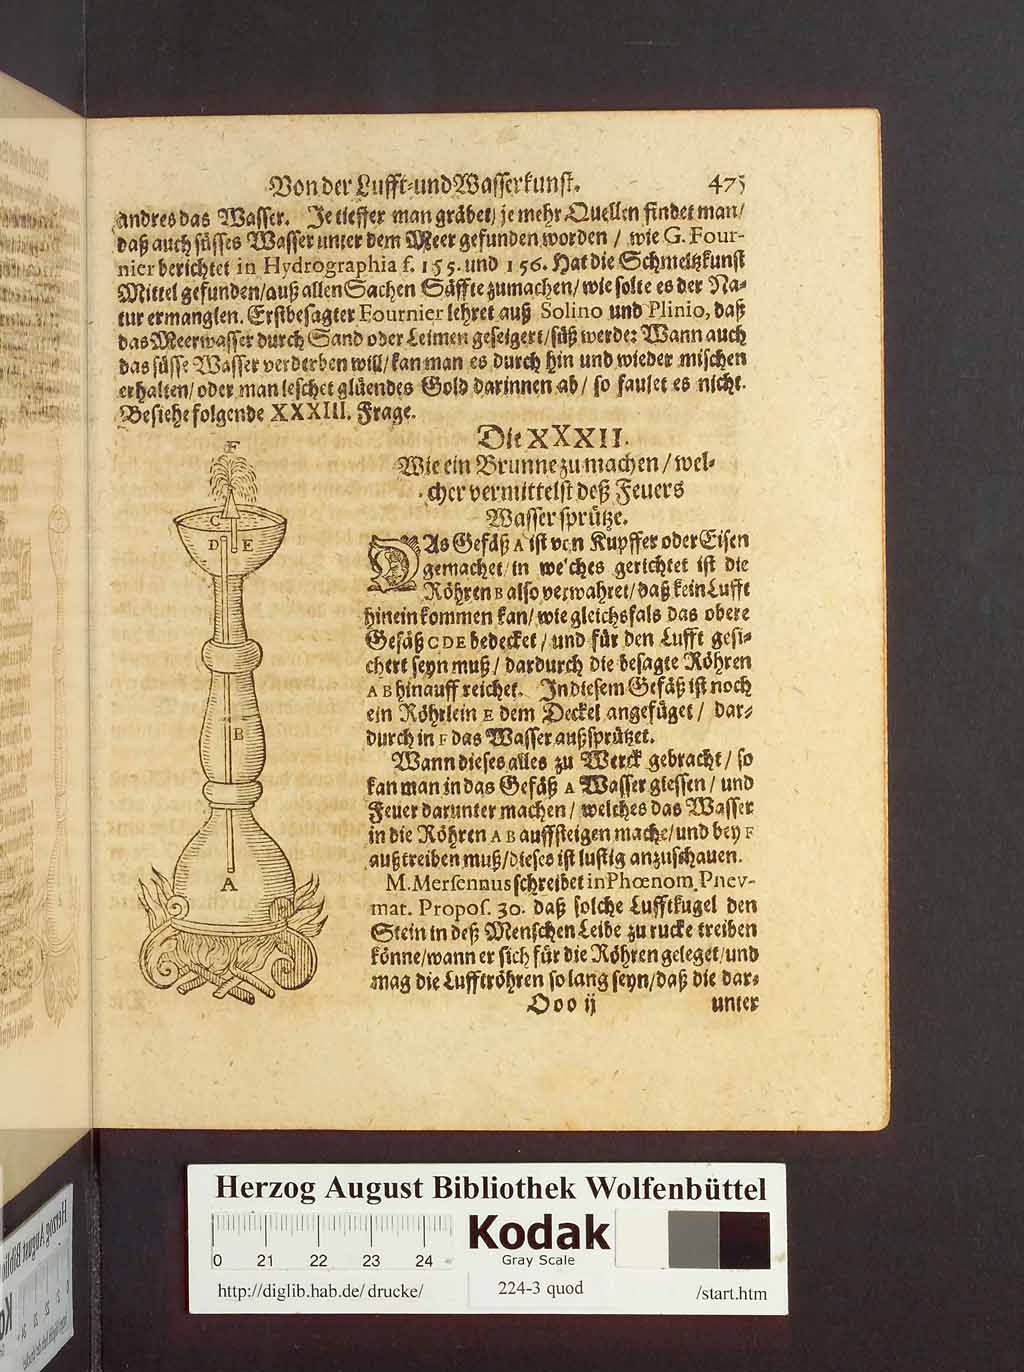 Von der Lufft-und Wasserkunst. 475
andres das Wasser. Je tieffer man gräbet/ je mehr Quellen findet man/
daß auch süsses Wasser unter dem Meer gefunden worden / wie G. Four-
nier berichtet in Hydrographia f. 155. und 156. Hat die Schmeltzkunst
Mittel gefunden/auß allen Sachen Säffte zumachen/ wie solte es der Na-
tur ermanglen. Erstbesagter Fournier lehret auß Solino und Plinio, daß
das Meerwasser durch Sand oder Leimen geseigert/süß werde: Wann auch
das süsse Wasser verderben will/kan man es durch hin und wieder mischen
erhalten/ oder man leschet glüendes Gold darinnen ab/ so faulet es nicht.
Besiehe folgende XXXIII. Frage.
Die XXXII.
Wie ein Brunne zu machen / wel-
cher vermittelst deß Feuers
Wasser sprütze.
DAs Gefäß A ist von Kupffer oder Eisen
gemachet/in welches gerichtet ist die
Röhren B also verwahret/daß kein Lufft
hinein kommen kan/wie gleichsfals das obere
Gefäß CDE bedecket / und für den Lufft gesi-
chert seyn muß/ dardurch die besagte Röhren
A B hinauff reichet. In diesem Gefäß ist noch
ein Röhrlein E dem Deckel angefüget/ dar-
durch in F das Wasser außsprützet.
Wann dieses alles zu Werck gebracht/ so
kan man in das Gefäß A Wasser giessen/ und
Feuer darunter machen/ welches das Wasser
in die Röhren A B auffsteigen mache/und bey F
außtreiben muß/dieses ist lustig anzuschauen.
M. Mersennus schreibet in Phœnom. Pnev-
mat. Propos. 30. daß solche Lufftkugel den
Stein in deß Menschen Leibe zu rucke treiben
könne/wann er sich für die Röhren geleget/und
mag die Lufftröhren so lang seyn/daß die dar-
Ooo ij unter
F
C
D E
B
A
Herzog August Bibliothek Wolfenbüttel
0 21 22 23 24
Kodak
Gray Scale
http://diglib.hab.de/drucke/ 224-3 quod /start.htm